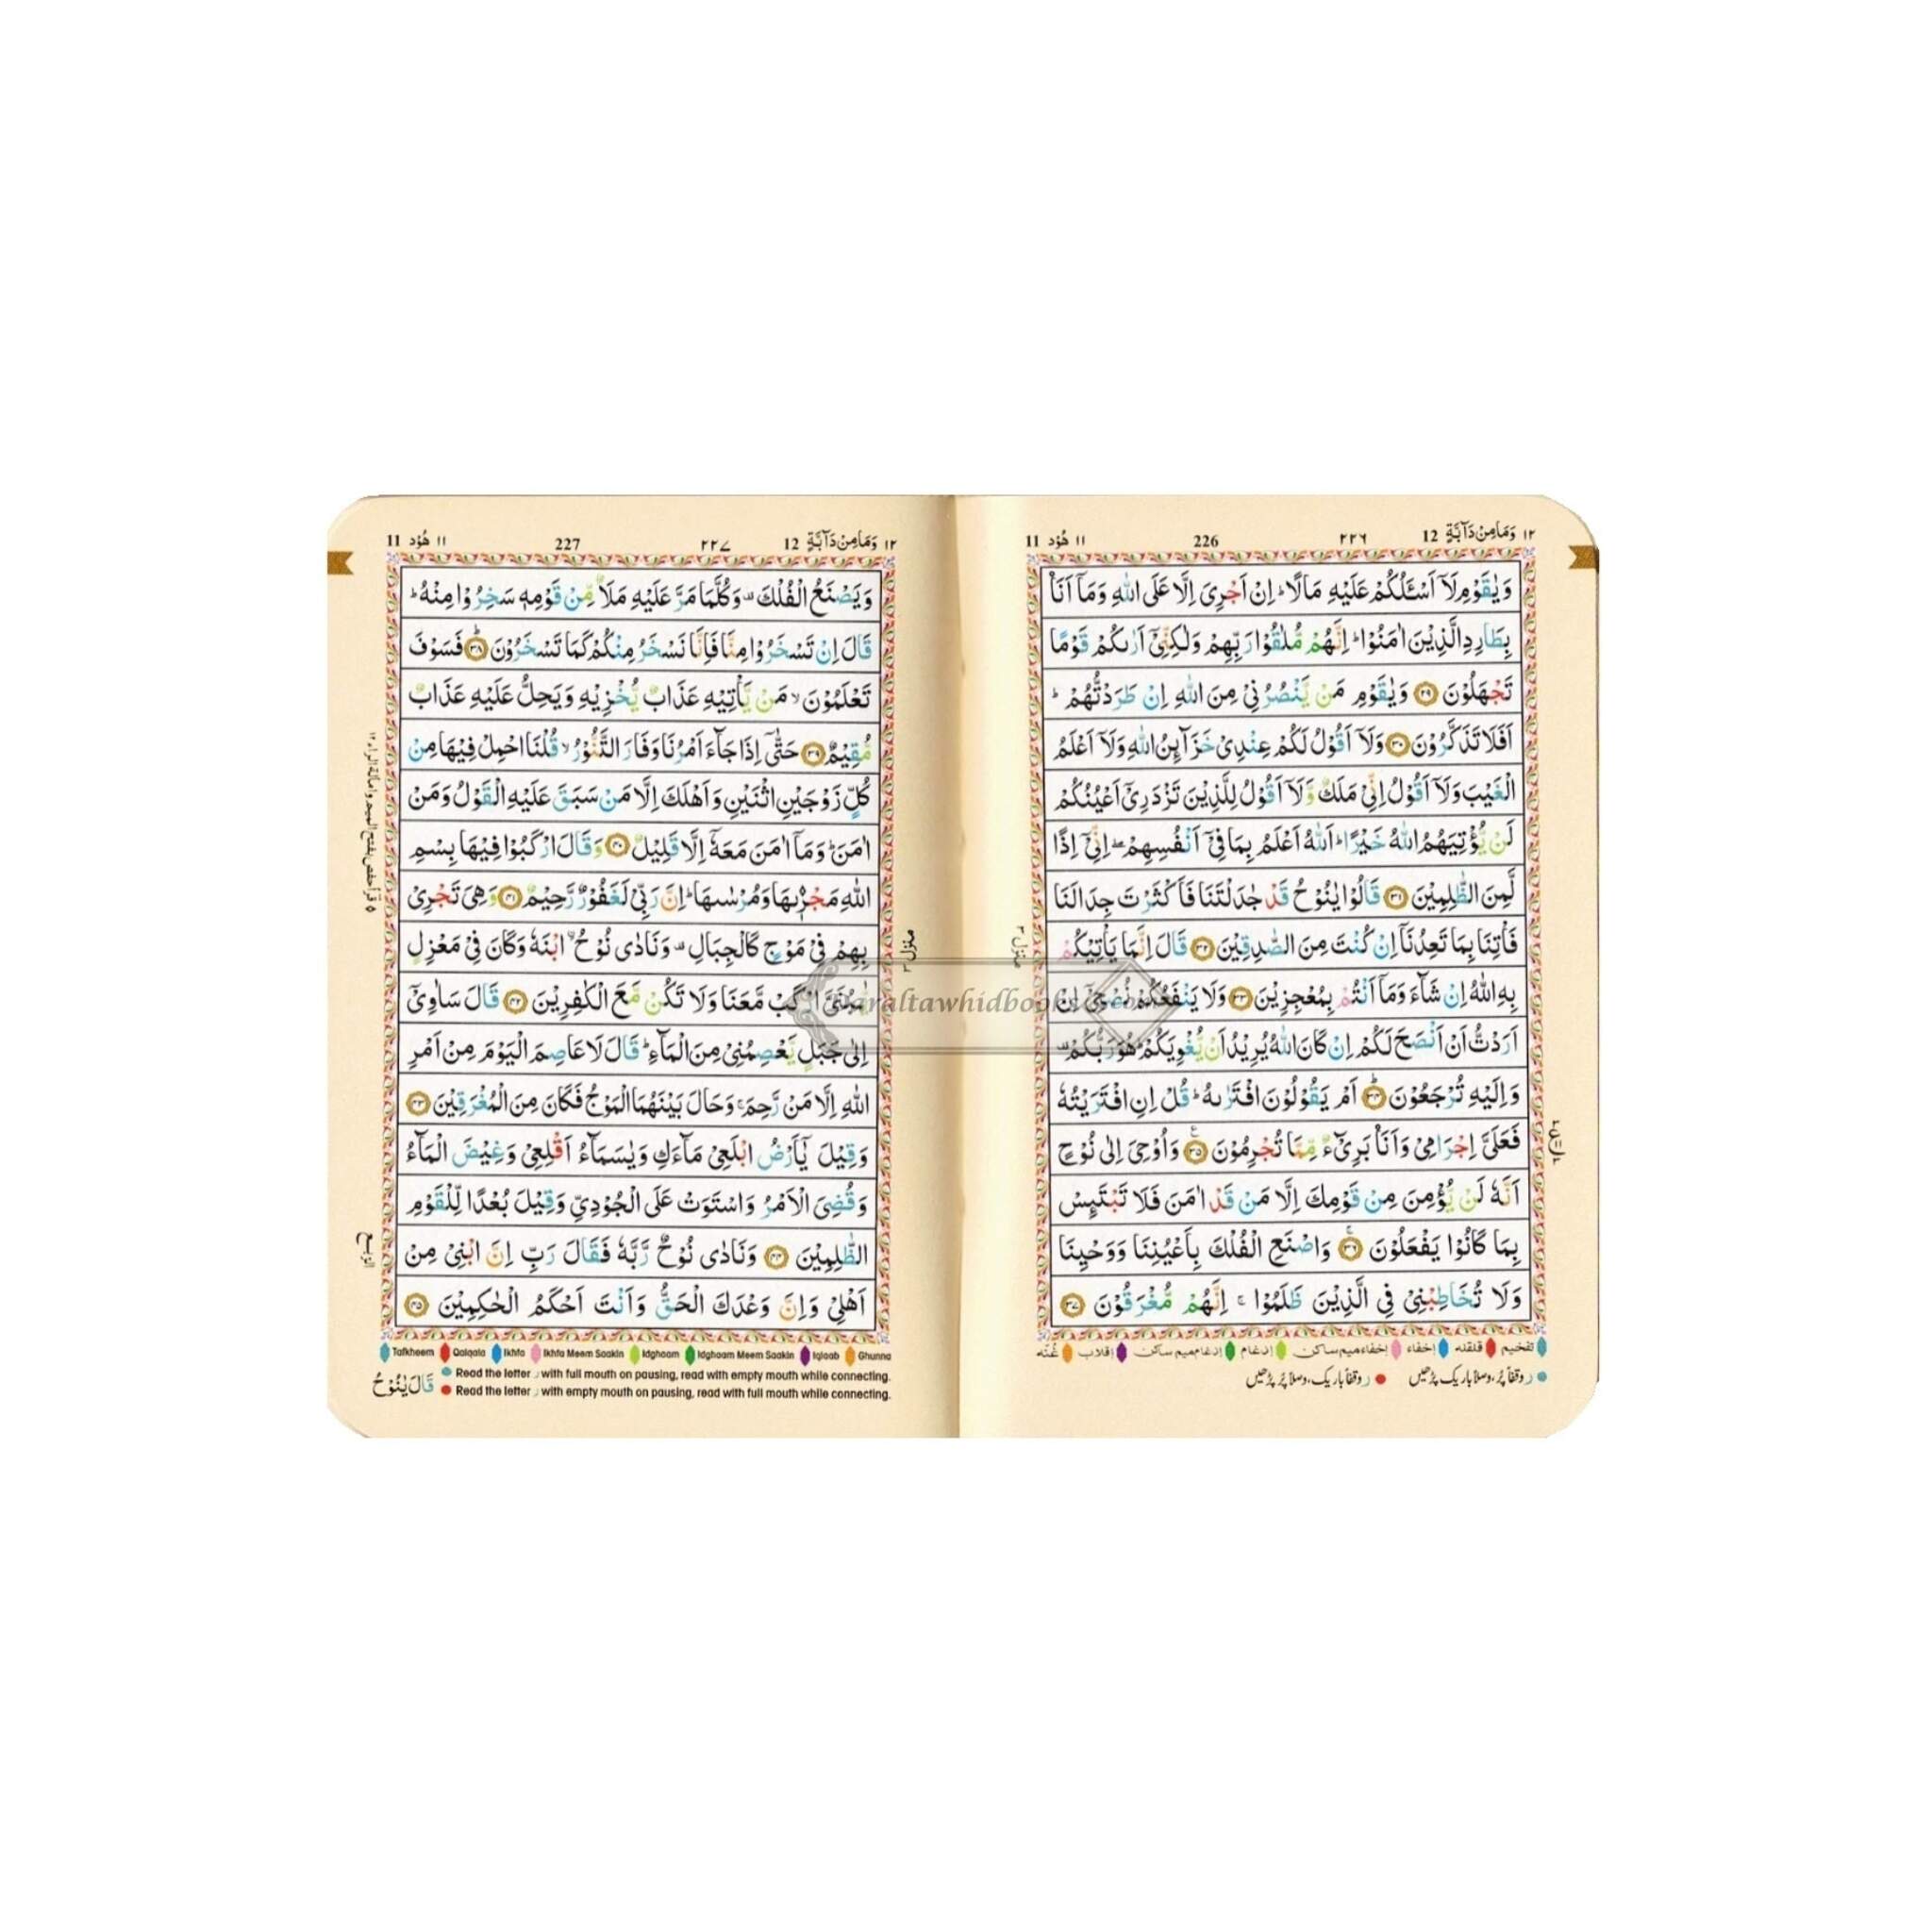 ١٢ وَمَا مِنْ دَآبَّةٍ 12 ٢٢٦ 226 ١١ هُوْد 11
وَيٰقَوْمِ لَآ اَسْـَٔلُكُمْ عَلَيْهِ مَالًا ؕ اِنْ اَجْرِىَ اِلَّا عَلَى اللّٰهِ وَمَآ اَنَا
بِطَارِدِ الَّذِيْنَ اٰمَنُوْا ؕ اِنَّهُمْ مُّلٰقُوْا رَبِّهِمْ وَلٰكِنِّىْٓ اَرٰىكُمْ قَوْمًا
تَجْهَلُوْنَ ۞٢٩ وَيٰقَوْمِ مَنْ يَّنْصُرُنِىْ مِنَ اللّٰهِ اِنْ طَرَدْتُّهُمْ ؕ
اَفَلَا تَذَكَّرُوْنَ ۞٣٠ وَلَآ اَقُوْلُ لَكُمْ عِنْدِىْ خَزَآئِنُ اللّٰهِ وَلَآ اَعْلَمُ
الْغَيْبَ وَلَآ اَقُوْلُ اِنِّىْ مَلَكٌ وَّلَآ اَقُوْلُ لِلَّذِيْنَ تَزْدَرِىْٓ اَعْيُنُكُمْ
لَنْ يُّؤْتِيَهُمُ اللّٰهُ خَيْرًا ؕ اَللّٰهُ اَعْلَمُ بِمَا فِىْٓ اَنْفُسِهِمْ ۖ اِنِّىْٓ اِذًا
لَّمِنَ الظّٰلِمِيْنَ ۞٣١ قَالُوْا يٰنُوْحُ قَدْ جٰدَلْتَنَا فَاَكْثَرْتَ جِدَالَنَا
فَاْتِنَا بِمَا تَعِدُنَآ اِنْ كُنْتَ مِنَ الصّٰدِقِيْنَ ۞٣٢ قَالَ اِنَّمَا يَاْتِيْكُمْ
بِهِ اللّٰهُ اِنْ شَآءَ وَمَآ اَنْتُمْ بِمُعْجِزِيْنَ ۞٣٣ وَلَا يَنْفَعُكُمْ نُصْحِىْٓ اِنْ
اَرَدْتُّ اَنْ اَنْصَحَ لَكُمْ اِنْ كَانَ اللّٰهُ يُرِيْدُ اَنْ يُّغْوِيَكُمْ ؕ هُوَ رَبُّكُمْ ۟
وَاِلَيْهِ تُرْجَعُوْنَ ۞٣٤ اَمْ يَقُوْلُوْنَ افْتَرٰىهُ ؕ قُلْ اِنِ افْتَرَيْتُهٗ
فَعَلَىَّ اِجْرَامِىْ وَاَنَا۠ بَرِىْٓءٌ مِّمَّا تُجْرِمُوْنَ ۞٣٥ وَاُوْحِىَ اِلٰى نُوْحٍ
اَنَّهٗ لَنْ يُّؤْمِنَ مِنْ قَوْمِكَ اِلَّا مَنْ قَدْ اٰمَنَ فَلَا تَبْتَئِسْ
بِمَا كَانُوْا يَفْعَلُوْنَ ۞٣٦ وَاصْنَعِ الْفُلْكَ بِاَعْيُنِنَا وَوَحْيِنَا
وَلَا تُخَاطِبْنِىْ فِى الَّذِيْنَ ظَلَمُوْا ۚ اِنَّهُمْ مُّغْرَقُوْنَ ۞٣٧
منزل ٣
تفخيم قلقله إخفاء إخفاء ميم ساكن إدغام إدغام ميم ساكن إقلاب غُنّه
ر وقفاً پُر، وصلاً باریک پڑھیں ر وقفاً باریک، وصلاً پُر پڑھیں
١٢ وَمَا مِنْ دَآبَّةٍ 12 ٢٢٧ 227 ١١ هُوْد 11
وَيَصْنَعُ الْفُلْكَ ۟ وَكُلَّمَا مَرَّ عَلَيْهِ مَلَاٌ مِّنْ قَوْمِهٖ سَخِرُوْا مِنْهُ ؕ
قَالَ اِنْ تَسْخَرُوْا مِنَّا فَاِنَّا نَسْخَرُ مِنْكُمْ كَمَا تَسْخَرُوْنَ ۞٣٨ فَسَوْفَ
تَعْلَمُوْنَ ۙ مَنْ يَّاْتِيْهِ عَذَابٌ يُّخْزِيْهِ وَيَحِلُّ عَلَيْهِ عَذَابٌ
مُّقِيْمٌ ۞٣٩ حَتّٰىٓ اِذَا جَآءَ اَمْرُنَا وَفَارَ التَّنُّوْرُ ۙ قُلْنَا احْمِلْ فِيْهَا مِنْ
كُلٍّ زَوْجَيْنِ اثْنَيْنِ وَاَهْلَكَ اِلَّا مَنْ سَبَقَ عَلَيْهِ الْقَوْلُ وَمَنْ
اٰمَنَ ؕ وَمَآ اٰمَنَ مَعَهٗٓ اِلَّا قَلِيْلٌ ۞٤٠ وَقَالَ ارْكَبُوْا فِيْهَا بِسْمِ
اللّٰهِ مَجْرٖىهَا وَمُرْسٰىهَا ؕ اِنَّ رَبِّىْ لَغَفُوْرٌ رَّحِيْمٌ ۞٤١ وَهِىَ تَجْرِىْ
بِهِمْ فِىْ مَوْجٍ كَالْجِبَالِ ۟ وَنَادٰى نُوْحُ ۨابْنَهٗ وَكَانَ فِىْ مَعْزِلٍ
يّٰبُنَىَّ ارْكَبْ مَّعَنَا وَلَا تَكُنْ مَّعَ الْكٰفِرِيْنَ ۞٤٢ قَالَ سَاٰوِىْٓ
اِلٰى جَبَلٍ يَّعْصِمُنِىْ مِنَ الْمَآءِ ؕ قَالَ لَا عَاصِمَ الْيَوْمَ مِنْ اَمْرِ
اللّٰهِ اِلَّا مَنْ رَّحِمَ ۚ وَحَالَ بَيْنَهُمَا الْمَوْجُ فَكَانَ مِنَ الْمُغْرَقِيْنَ ۞٤٣
وَقِيْلَ يٰٓاَرْضُ ابْلَعِىْ مَآءَكِ وَيٰسَمَآءُ اَقْلِعِىْ وَغِيْضَ الْمَآءُ
وَقُضِىَ الْاَمْرُ وَاسْتَوَتْ عَلَى الْجُوْدِىِّ وَقِيْلَ بُعْدًا لِّلْقَوْمِ
الظّٰلِمِيْنَ ۞٤٤ وَنَادٰى نُوْحٌ رَّبَّهٗ فَقَالَ رَبِّ اِنَّ ابْنِىْ مِنْ
اَهْلِىْ وَاِنَّ وَعْدَكَ الْحَقُّ وَاَنْتَ اَحْكَمُ الْحٰكِمِيْنَ ۞٤٥
منزل ٣
الربع
Tafkheem Qalqala Ikhfa Ikhfa Meem Saakin Idghaam Idghaam Meem Saakin Iqlaab Ghunna
Read the letter ر with full mouth on pausing, read with empty mouth while connecting.
Read the letter ر with empty mouth on pausing, read with full mouth while connecting.
قَالَ يٰنُوْحُ
daraltawhidbooks.com